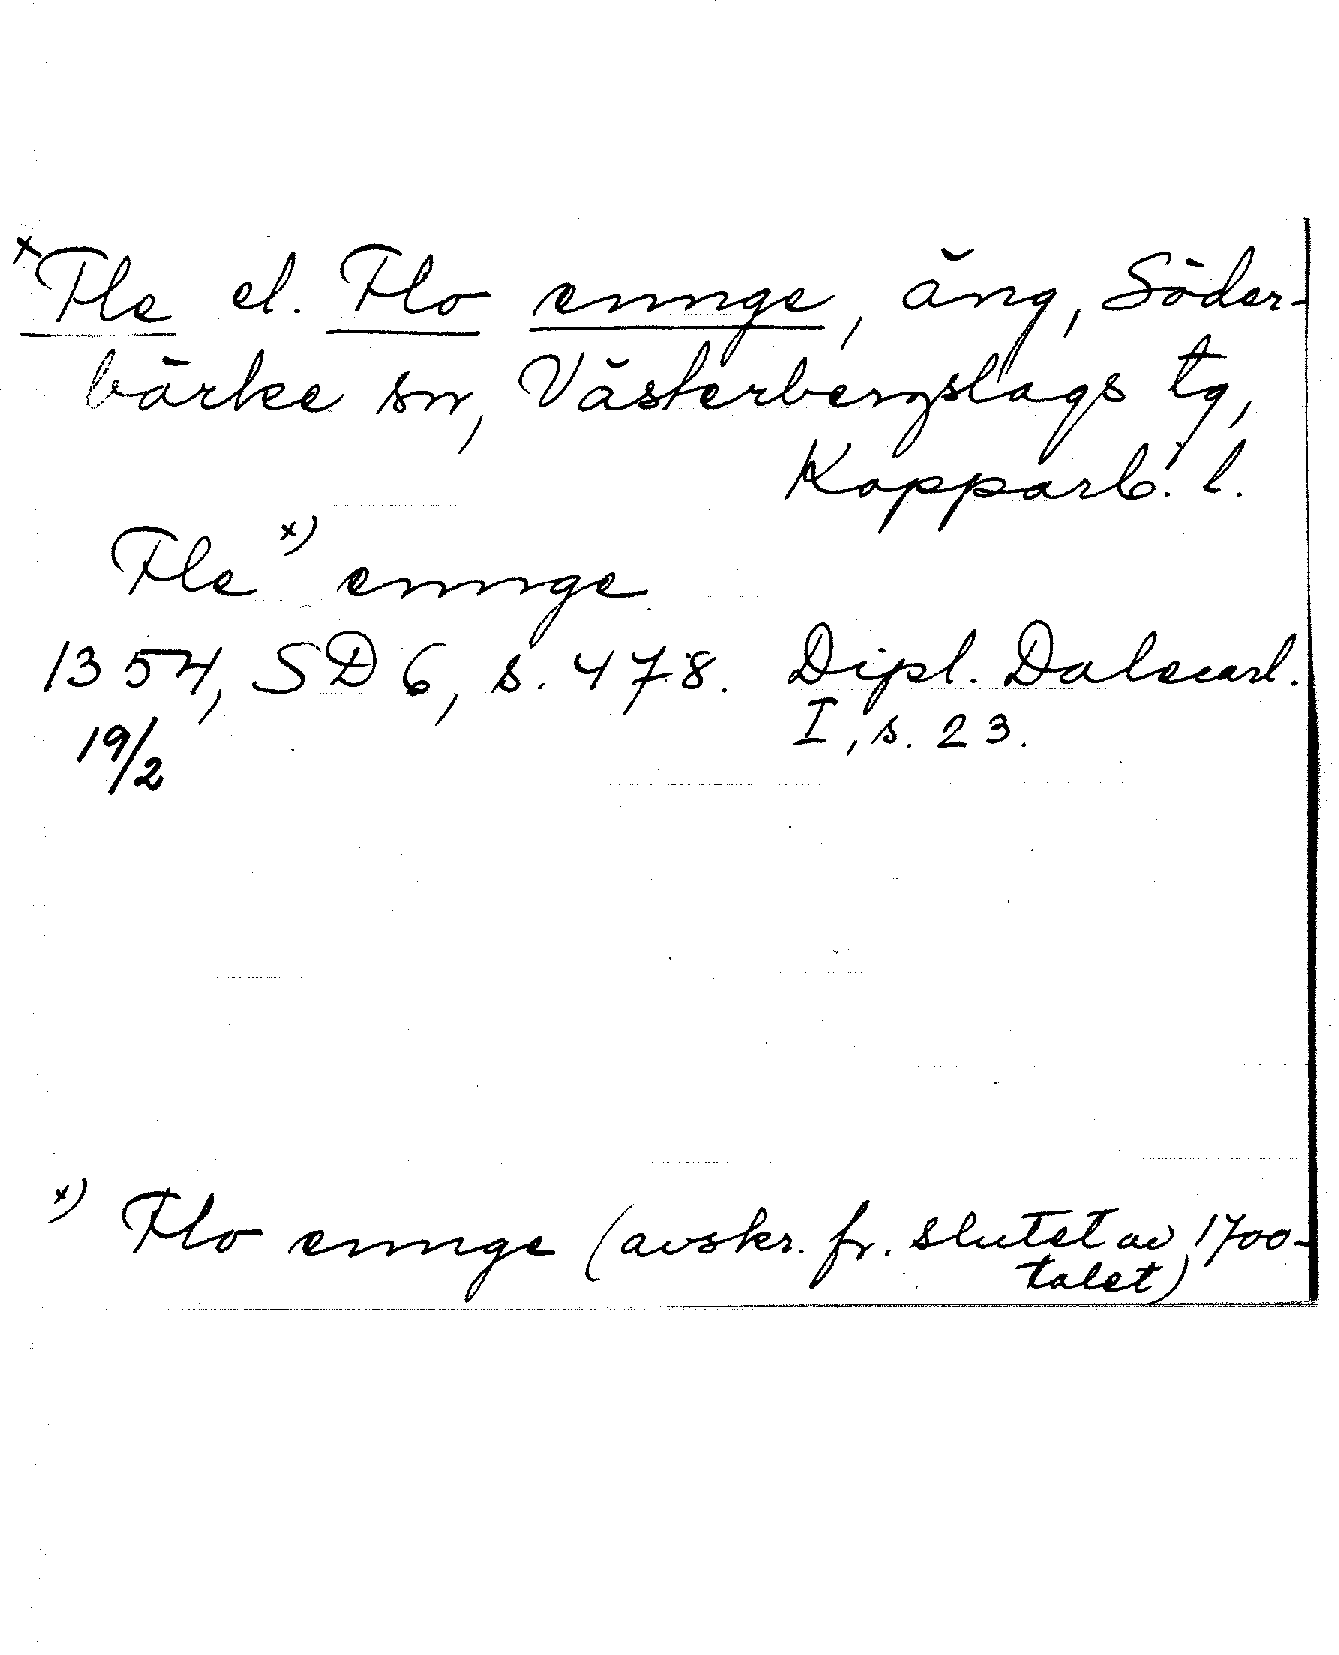 x Fle el. Flo ennge, äng, Söder-
bärke sn, Västerbergslags tg,
Kopparb. l.
Fle x) ennge
1354, SD 6, s. 478. Dipl. Dalecarl.
19/2 I, s. 23.
x) Flo ennge (avskr. fr. slutet av 1700-
talet)